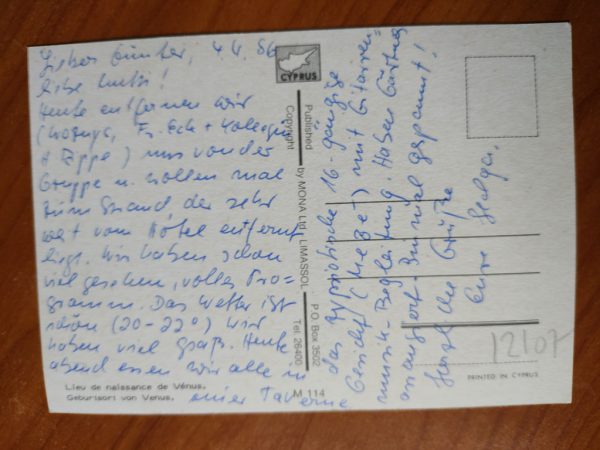 Lieber Günter, 4.4.86
liebe Mutti!
Heute entfernen wir
(       , Fr. Eck + Kollegin
+       ) uns von der
Gruppe u. wollen mal
zum Strand, der sehr
weit vom Hotel entfernt
liegt. Wir haben schon
viel gesehen, volles Pro-
gramm. Das Wetter ist
schön (20-22°) wir
haben viel Spaß. Heute
abend essen wir alle in
einer Taverne
das zypriotische 16-gängige
Gericht (Meze) mit Gitarren-
musik-Begleitung. Haben
Bin mal gespannt!
Herzliche Grüße
Eure Helga.
CYPRUS
Published by MONA Ltd LIMASSOL P.O Box 3502
Copyright Tel. 26400
Lieu de naissance de Vénus.
Geburtsort von Venus.
M 114
PRINTED IN CYPRUS
12107